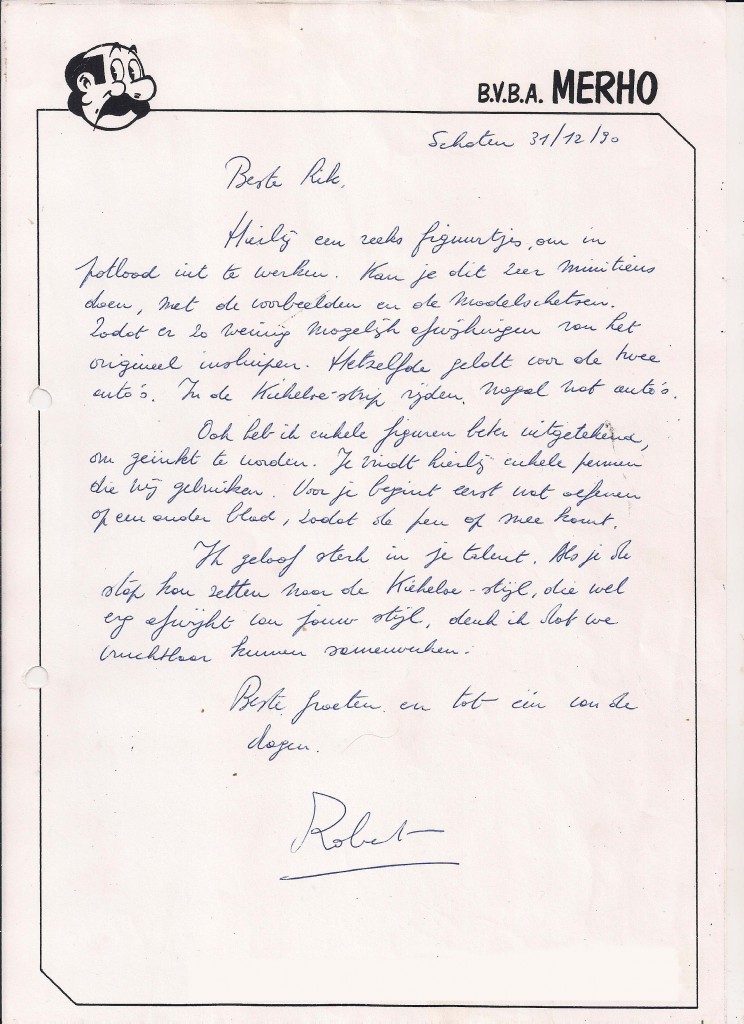 B.V.B.A. MERHO
Schoten 31/12/90
Beste Rik,
Hierbij een reeks figuurtjes, om in
potlood uit te werken. Kan je dit zeer minitieus
doen, met de voorbeelden en de modelschetsen.
Zodat er zo weinig mogelijk afwijkingen van het
origineel insluipen. Hetzelfde geldt voor de twee
auto's. In de Kiekeboe-strip rijden nogal wat auto's.
Ook heb ik enkele figuren beter uitgetekend,
om geïnkt te worden. Je vindt hierbij enkele pennen
die wij gebruiken. Voor je begint eerst wat oefenen
op een ander blad, zodat de pen op mee komt.
Ik geloof sterk in je talent. Als je de
stap kan zetten naar de Kiekeboe-stijl, die wel
erg afwijkt van jouw stijl, denk ik dat we
vruchtbaar kunnen samenwerken.
Beste groeten en tot één van de
dagen.
Robert